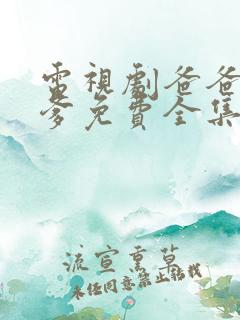 電視劇爸爸
爹免費全集
流宣熏草
未经同意禁止转载